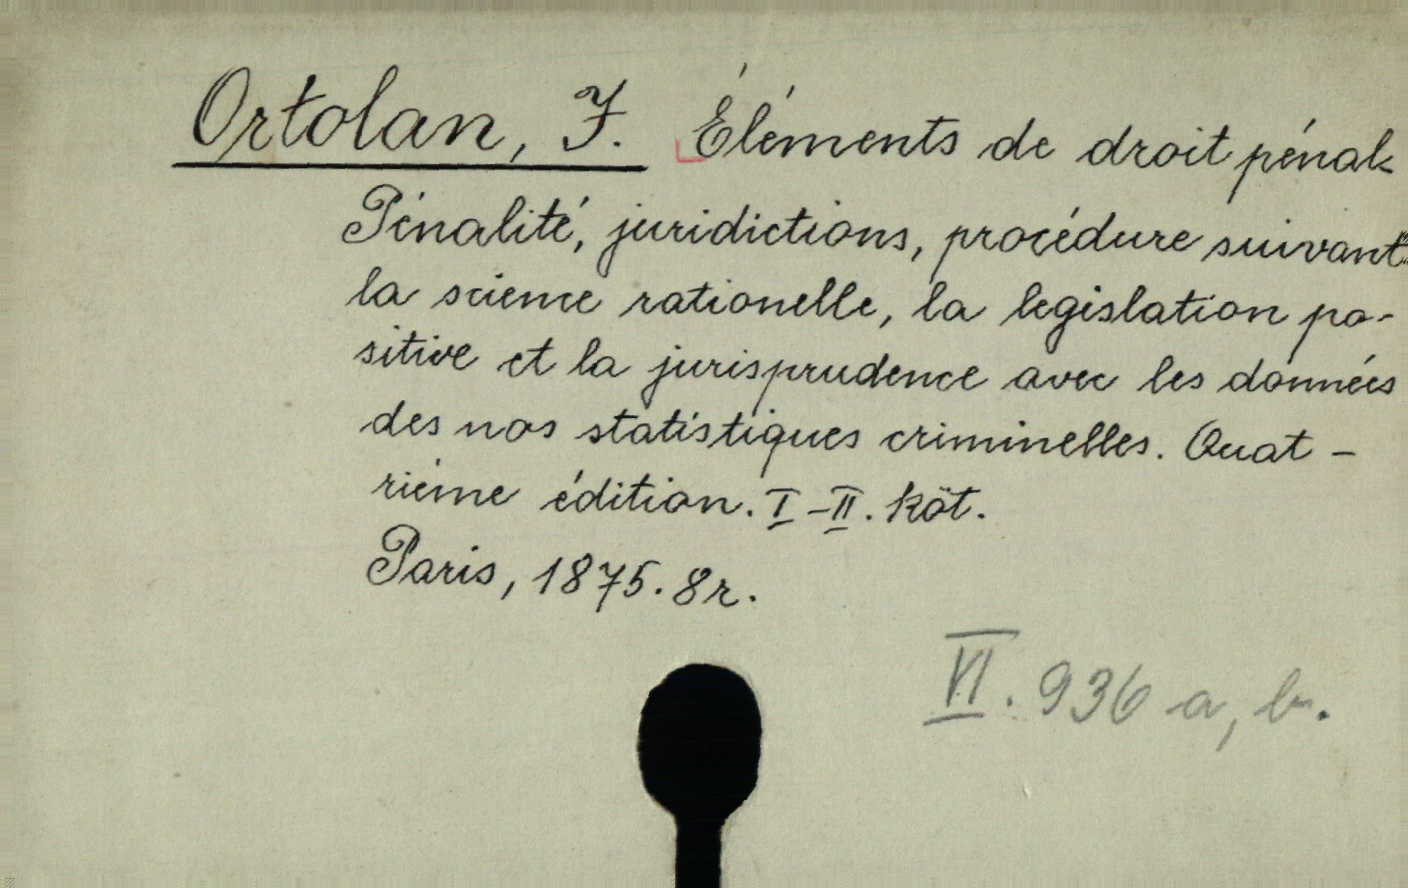 Ortolan, J. Éléments de droit pénal.
Pénalité, juridictions, procédure suivant
la science rationelle, la legislation po-
sitive et la jurisprudence avec les données
des nos statistiques criminelles. Quat-
riéme édition. I-II. köt.
Paris, 1875. 8r.
VI. 936 a, b.